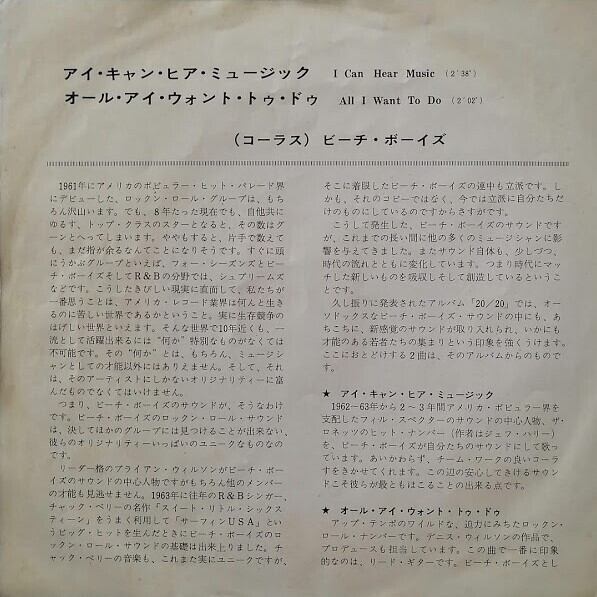 アイ・キャン・ヒア・ミュージック I Can Hear Music (2′38″)
オール・アイ・ウォント・トゥ・ドゥ All I Want To Do (2′02″)
(コーラス) ビーチ・ボーイズ
1961年にアメリカのポピュラー・ヒット・パレード界
にデビューした、ロックン・ロール・グループは、もち
ろん沢山います。でも、8年たった現在でも、自他共に
ゆるす、トップ・クラスのスターとなると、その数はグ
ーンとへってしまいます。ややもすると、片手で数えて
も、まだ指が余るなんてことになりそうです。すぐに頭
にうかぶグループといえば、フォー・シーズンズとビー
チ・ボーイズそしてR&Bの分野では、シュプリームズ
などです。こうしたきびしい現実に直面して、私たちが
一番思うことは、アメリカ・レコード業界は何んと生き
るのに苦しい世界であるかということ。実に生存競争の
はげしい世界といえます。そんな世界で10年近くも、一
流として活躍出来るには“何か”特別なものがなくては
不可能です。その“何か”とは、もちろん、ミュージシ
ャンとしての才能以外にはありえません。そして、それ
は、そのアーティストにしかないオリジナリティーに富
んだものでなくてはいけません。
つまり、ビーチ・ボーイズのサウンドが、そうなわけ
です。ビーチ・ボーイズのロックン・ロール・サウンド
は、決してほかのグループには見つけることが出来ない、
彼らのオリジナリティーいっぱいのユニークなものなの
です。
リーダー格のブライアン・ウィルソンがビーチ・ボーイ
ズのサウンドの中心人物ですがもちろん他のメンバー
の才能も見逃せません。1963年に往年のR&Bシンガー、
チャック・ベリーの名作「スイート・リトル・シックス
ティーン」をうまく利用して「サーフィンUSA」とい
うビッグ・ヒットを生んだときにビーチ・ボーイズのロ
ックン・ロール・サウンドの基礎は出来上りました。チ
ャック・ベリーの音楽も、これまた実にユニークですが、
そこに着眼したビーチ・ボーイズの連中も立派です。し
かも、それのコピーではなく、今では立派に自分たちだ
けのものにしているのですからさすがです。
こうして発生した、ビーチ・ボーイズのサウンドです
が、これまでの長い間に他の多くのミュージシャンに影
響を与えてきました。またサウンド自体も、少しづつ、
時代の流れとともに変化しています。つまり時代にマッ
チした新しいものを吸収しそして創造しているというこ
とです。
久し振りに発表されたアルバム「20/20」では、オー
ソドックスなビーチ・ボーイズ・サウンドの中にも、あ
ちこちに、新感覚のサウンドが取り入れられ、いかにも
才能のある若者たちの集まりという印象を強くうけます。
ここにおとどけする2曲は、そのアルバムからのもので
す。
★ アイ・キャン・ヒア・ミュージック
1962〜63年から2〜3年間アメリカ・ポピュラー界を
支配したフィル・スペクターのサウンドの中心人物、ザ・
ロネッツのヒット・ナンバー(作者はジェフ・バリー)
を、ビーチ・ボーイズが自分たちのサウンドにして歌っ
ています。あいかわらず、チーム・ワークの良いコーラ
スをきかせてくれます。この辺の安心してきけるサウン
ドこそ彼らが最ともほこることの出来る点です。
★ オール・アイ・ウォント・トゥ・ドゥ
アップ・テンポのワイルドな、迫力にみちたロックン・
ロール・ナンバーです。デニス・ウィルソンの作品で、
プロデュースも担当しています。この曲で一番に印象
的なのは、リード・ギターです。ビーチ・ボーイズとし